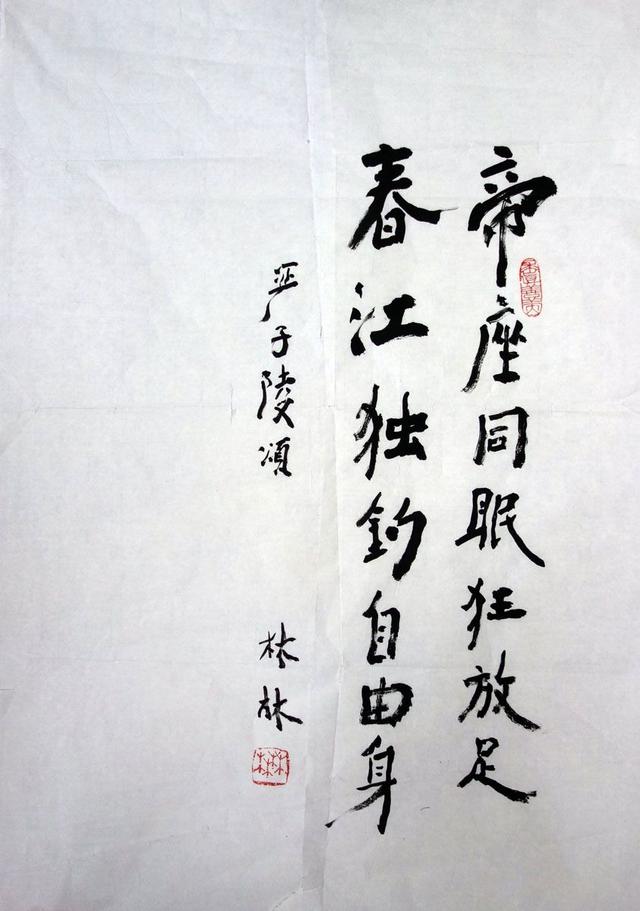 帝座同眠狂放足
春江独钓自由身
严子陵颂
林林